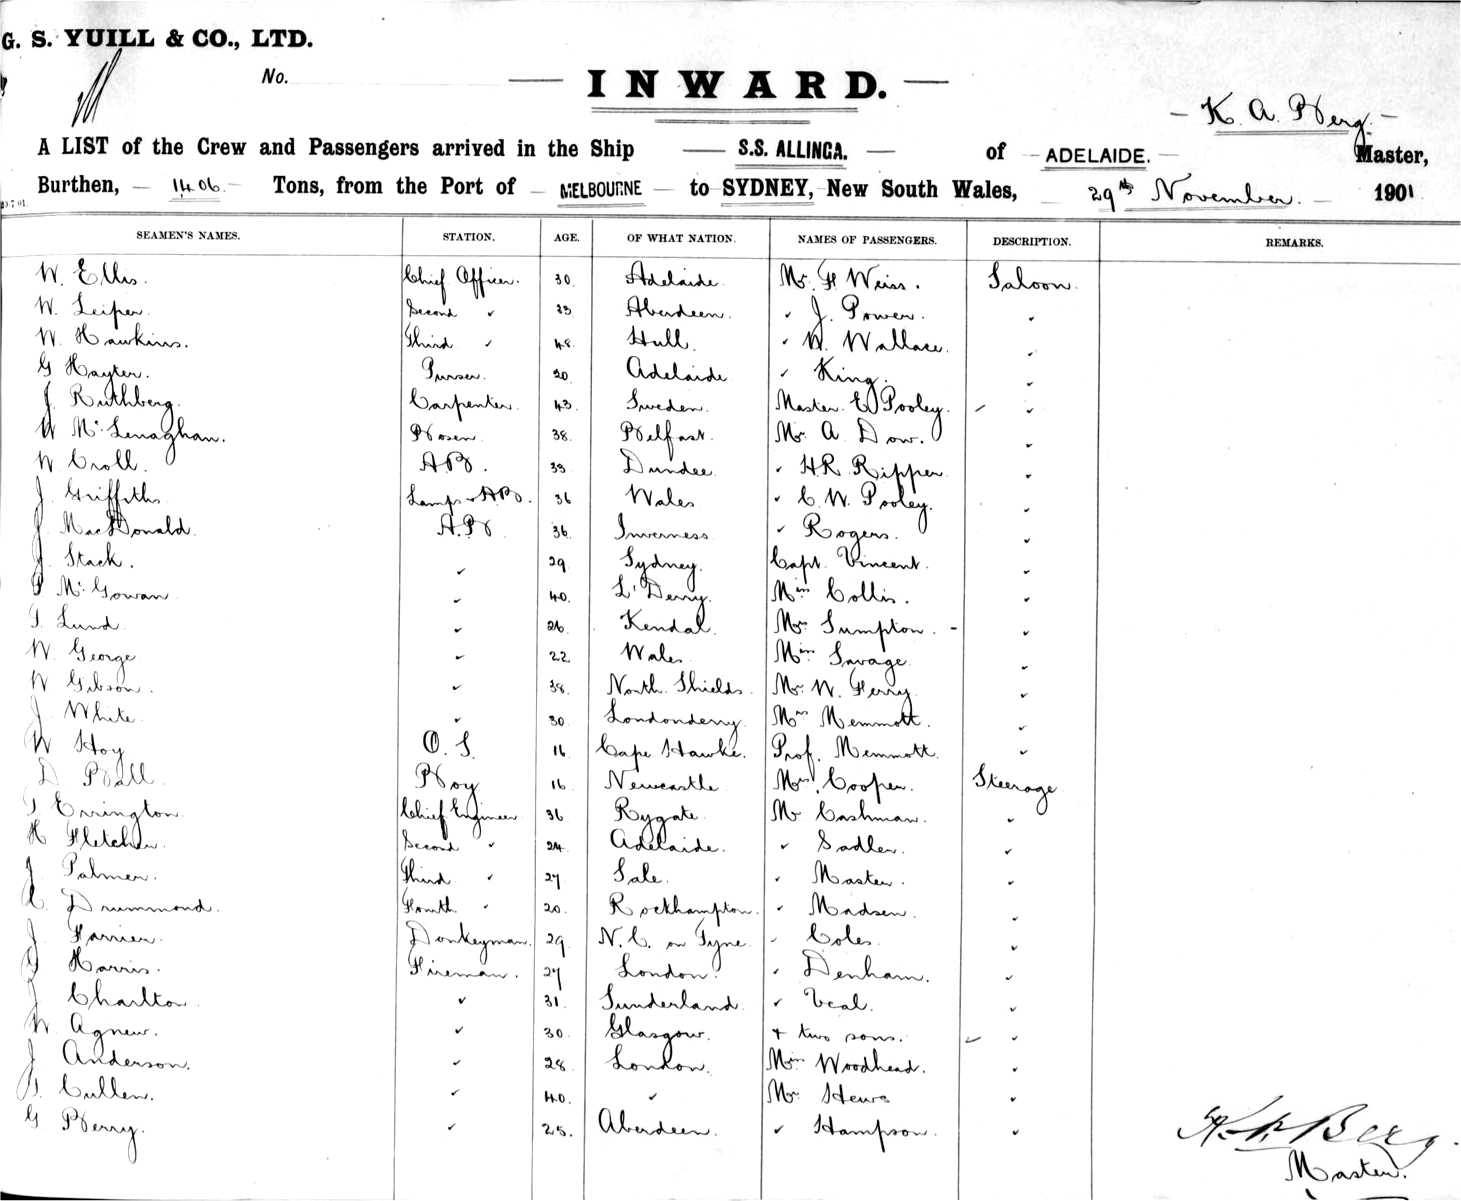 G. S. YUILL & CO., LTD.
No.
INWARD.
K. A. Berg.
A LIST of the Crew and Passengers arrived in the Ship S.S. ALLINGA. of ADELAIDE. Master,
Burthen, 1406 Tons, from the Port of MELBOURNE to SYDNEY, New South Wales, 29th November. 1901
SEAMEN'S NAMES. STATION. AGE. OF WHAT NATION. NAMES OF PASSENGERS. DESCRIPTION. REMARKS.
W. Ellis. Chief Officer. 30. Adelaide. Mr. F Weiss. Saloon.
W. Leiper. Second " 33 Aberdeen. " J. Power. "
W. Hawkins. Third " 48. Hull. " W. Wallace. "
G Hayter. Purser. 20. Adelaide " King. "
J Ruthberg. Carpenter. 43. Sweden. Master. E Pooley. "
W McLenaghan. Bosen. 38. Belfast. Mr. A Dow. "
W Croll. AB. 33 Dundee. " HR Ripper. "
J. Griffiths Lamps & AB. 36 Wales " C. W. Pooley. "
J. MacDonald. A.B 36. Inverness " Rogers. "
J. Stack. " 29 Sydney. Capt. Vincent. "
McGowan " 40. L'Derry. Miss Collis. "
Lund. " 26. Kendal. Mrs Sumpton. "
W. George " 22. Wales Miss Savage. "
W Gibson. " 38. North Shields. Mr. W. Ferry. "
J White. " 30 Londonderry. Mrs Memmott. "
W Hoy O.S. 16 Cape Hawke. Prof. Memmott. "
D Ball Boy 16 Newcastle Mrs. Cooper. Steerage
Errington. Chief Engineer 36 Rygate. Mr Cashman. "
H Fletcher. Second " 24. Adelaide. " Sadler. "
J. Palmer. Third " 27 Sale. " Master. "
Drummond. Fourth " 20. Rockhampton. " Madsen. "
J. Farrier. Donkeyman. 29 N.C. on Tyne " Coles. "
Harris. Fireman. 27 London. " Denham. "
J Charlton " 31. Sunderland. " Veal. "
W Agnew. " 30. Glasgow. + two sons. "
J Anderson. " 28. London. Miss Woodhead. "
Cullen. " 40. " Mr. Hews "
G Berry. " 25. Aberdeen. " Hampson. "
K. A. Berg.
Master.